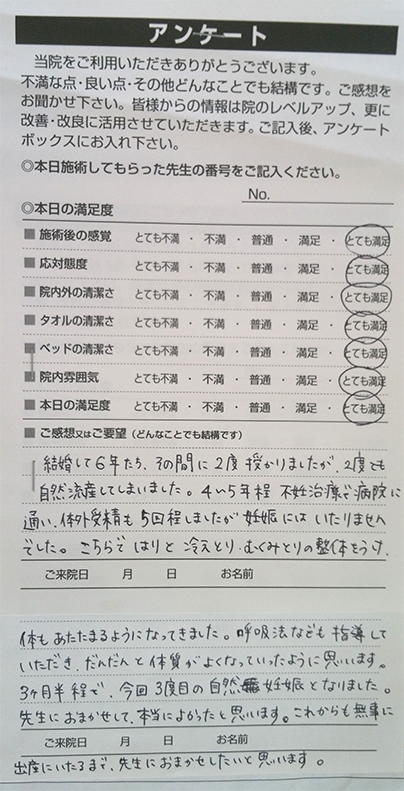 アンケート
当院をご利用いただきありがとうございます。
不満な点・良い点・その他どんなことでも結構です。ご感想を
お聞かせ下さい。皆様からの情報は院のレベルアップ、更に
改善・改良に活用させていただきます。ご記入後、アンケート
ボックスにお入れ下さい。
◎本日施術してもらった先生の番号をご記入ください。
No.
◎本日の満足度
■ 施術後の感覚 とても不満 ・ 不満 ・ 普通 ・ 満足 ・ とても満足
■ 応対態度 とても不満 ・ 不満 ・ 普通 ・ 満足 ・ とても満足
■ 院内外の清潔さ とても不満 ・ 不満 ・ 普通 ・ 満足 ・ とても満足
■ タオルの清潔さ とても不満 ・ 不満 ・ 普通 ・ 満足 ・ とても満足
■ ベッドの清潔さ とても不満 ・ 不満 ・ 普通 ・ 満足 ・ とても満足
■ 院内雰囲気 とても不満 ・ 不満 ・ 普通 ・ 満足 ・ とても満足
■ 本日の満足度 とても不満 ・ 不満 ・ 普通 ・ 満足 ・ とても満足
■ ご感想又はご要望（どんなことでも結構です）
結婚して6年たち、その間に2度授かりましたが、2度とも
自然流産してしまいました。4〜5年程 不妊治療で病院に
通い、体外受精も5回程しましたが妊娠にはいたりませんでした。
こちらで はりと 冷えとり・むくみとりの整体をうけ、
ご来院日 月 日 お名前
体もあたたまるようになってきました。呼吸法なども指導して
いただき、だんだんと体質がよくなっていったように思います。
3ヶ月半程で、今回3度目の自然妊娠となりました。
先生におまかせして、本当によかったと思います。これからも無事に
ご来院日 月 日 お名前
出産にいたるまで、先生におまかせしたいと思います。